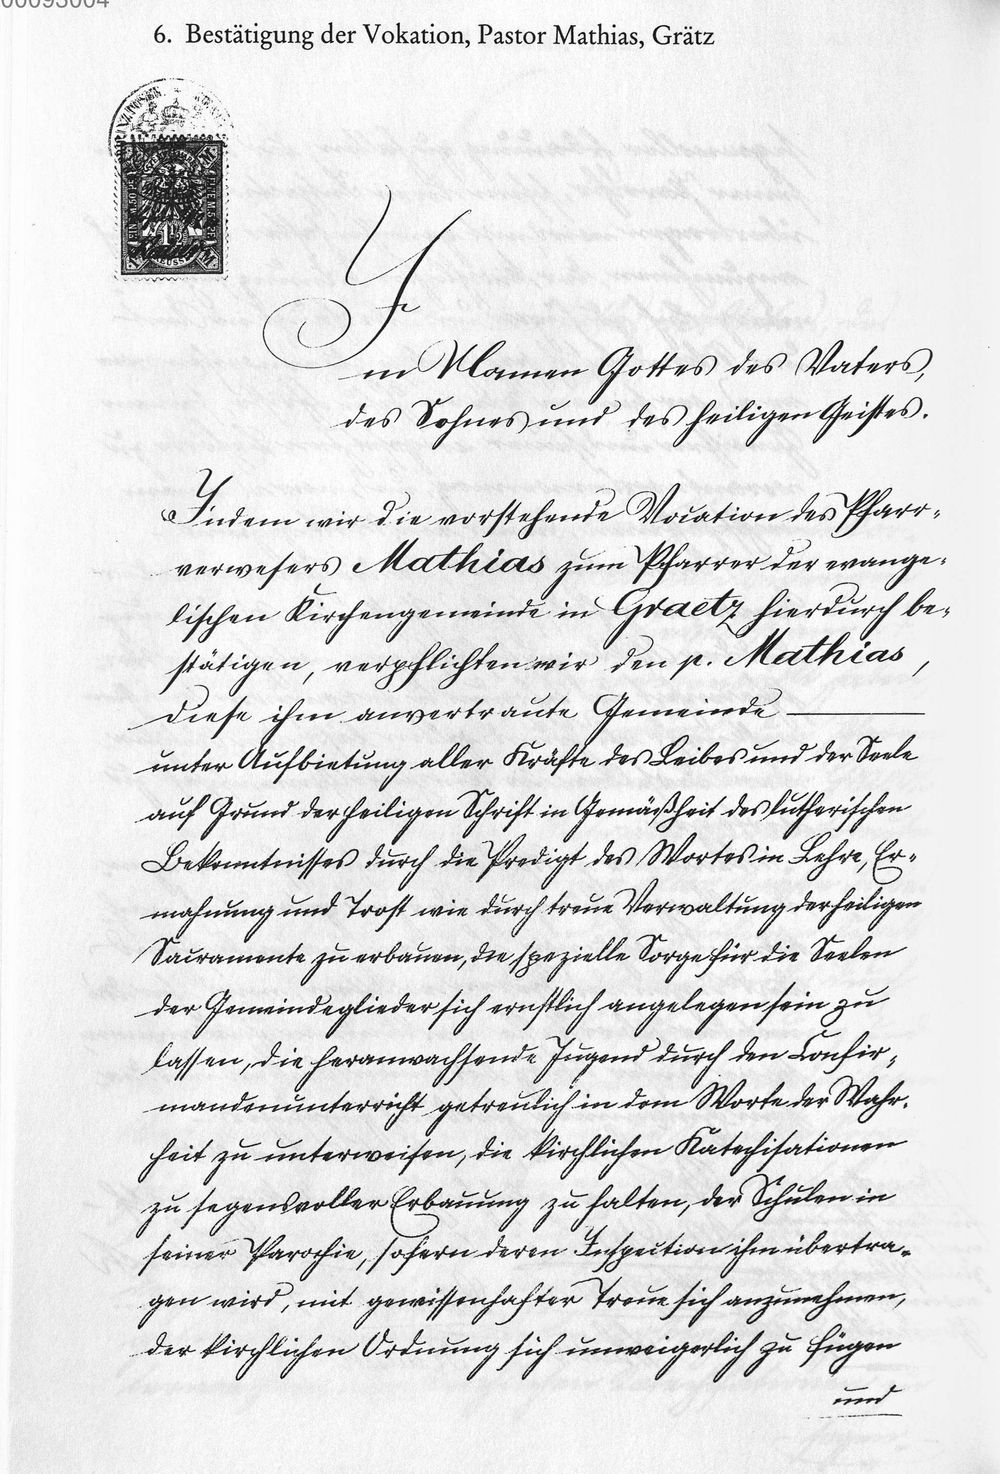 00093004
6. Bestätigung der Vokation, Pastor Mathias, Grätz
Im Namen Gottes des Vaters,
des Sohnes und des heiligen Geistes.
Indem wir die vorstehende Vocation des Pfarr-
verwesers Mathias zum Pfarrer der evange-
lischen Kirchengemeinde in Graetz hierdurch be-
stätigen, verpflichten wir den p. Mathias,
diese ihm anvertraute Gemeinde
unter Aufbietung aller Kräfte des Leibes und der Seele
auf Grund der heiligen Schrift in Gemäßheit des lutherischen
Bekenntnisses durch die Predigt des Wortes in Lehre, Er-
mahnung und Trost wie durch treue Verwaltung der heiligen
Sacramente zu erbauen, die spezielle Sorge für die Seelen
der Gemeindeglieder sich ernstlich angelegen sein zu
lassen, die heranwachsende Jugend durch den Confir-
mandenunterricht getreulich in dem Worte der Wahr-
heit zu unterweisen, die kirchlichen Katechisationen
zu segensvoller Erbauung zu halten, der Schulen in
seiner Parochie, sofern deren Inspection ihm übertra-
gen wird, mit gewissenhafter Treue sich anzunehmen,
der kirchlichen Ordnung sich unweigerlich zu fügen
und